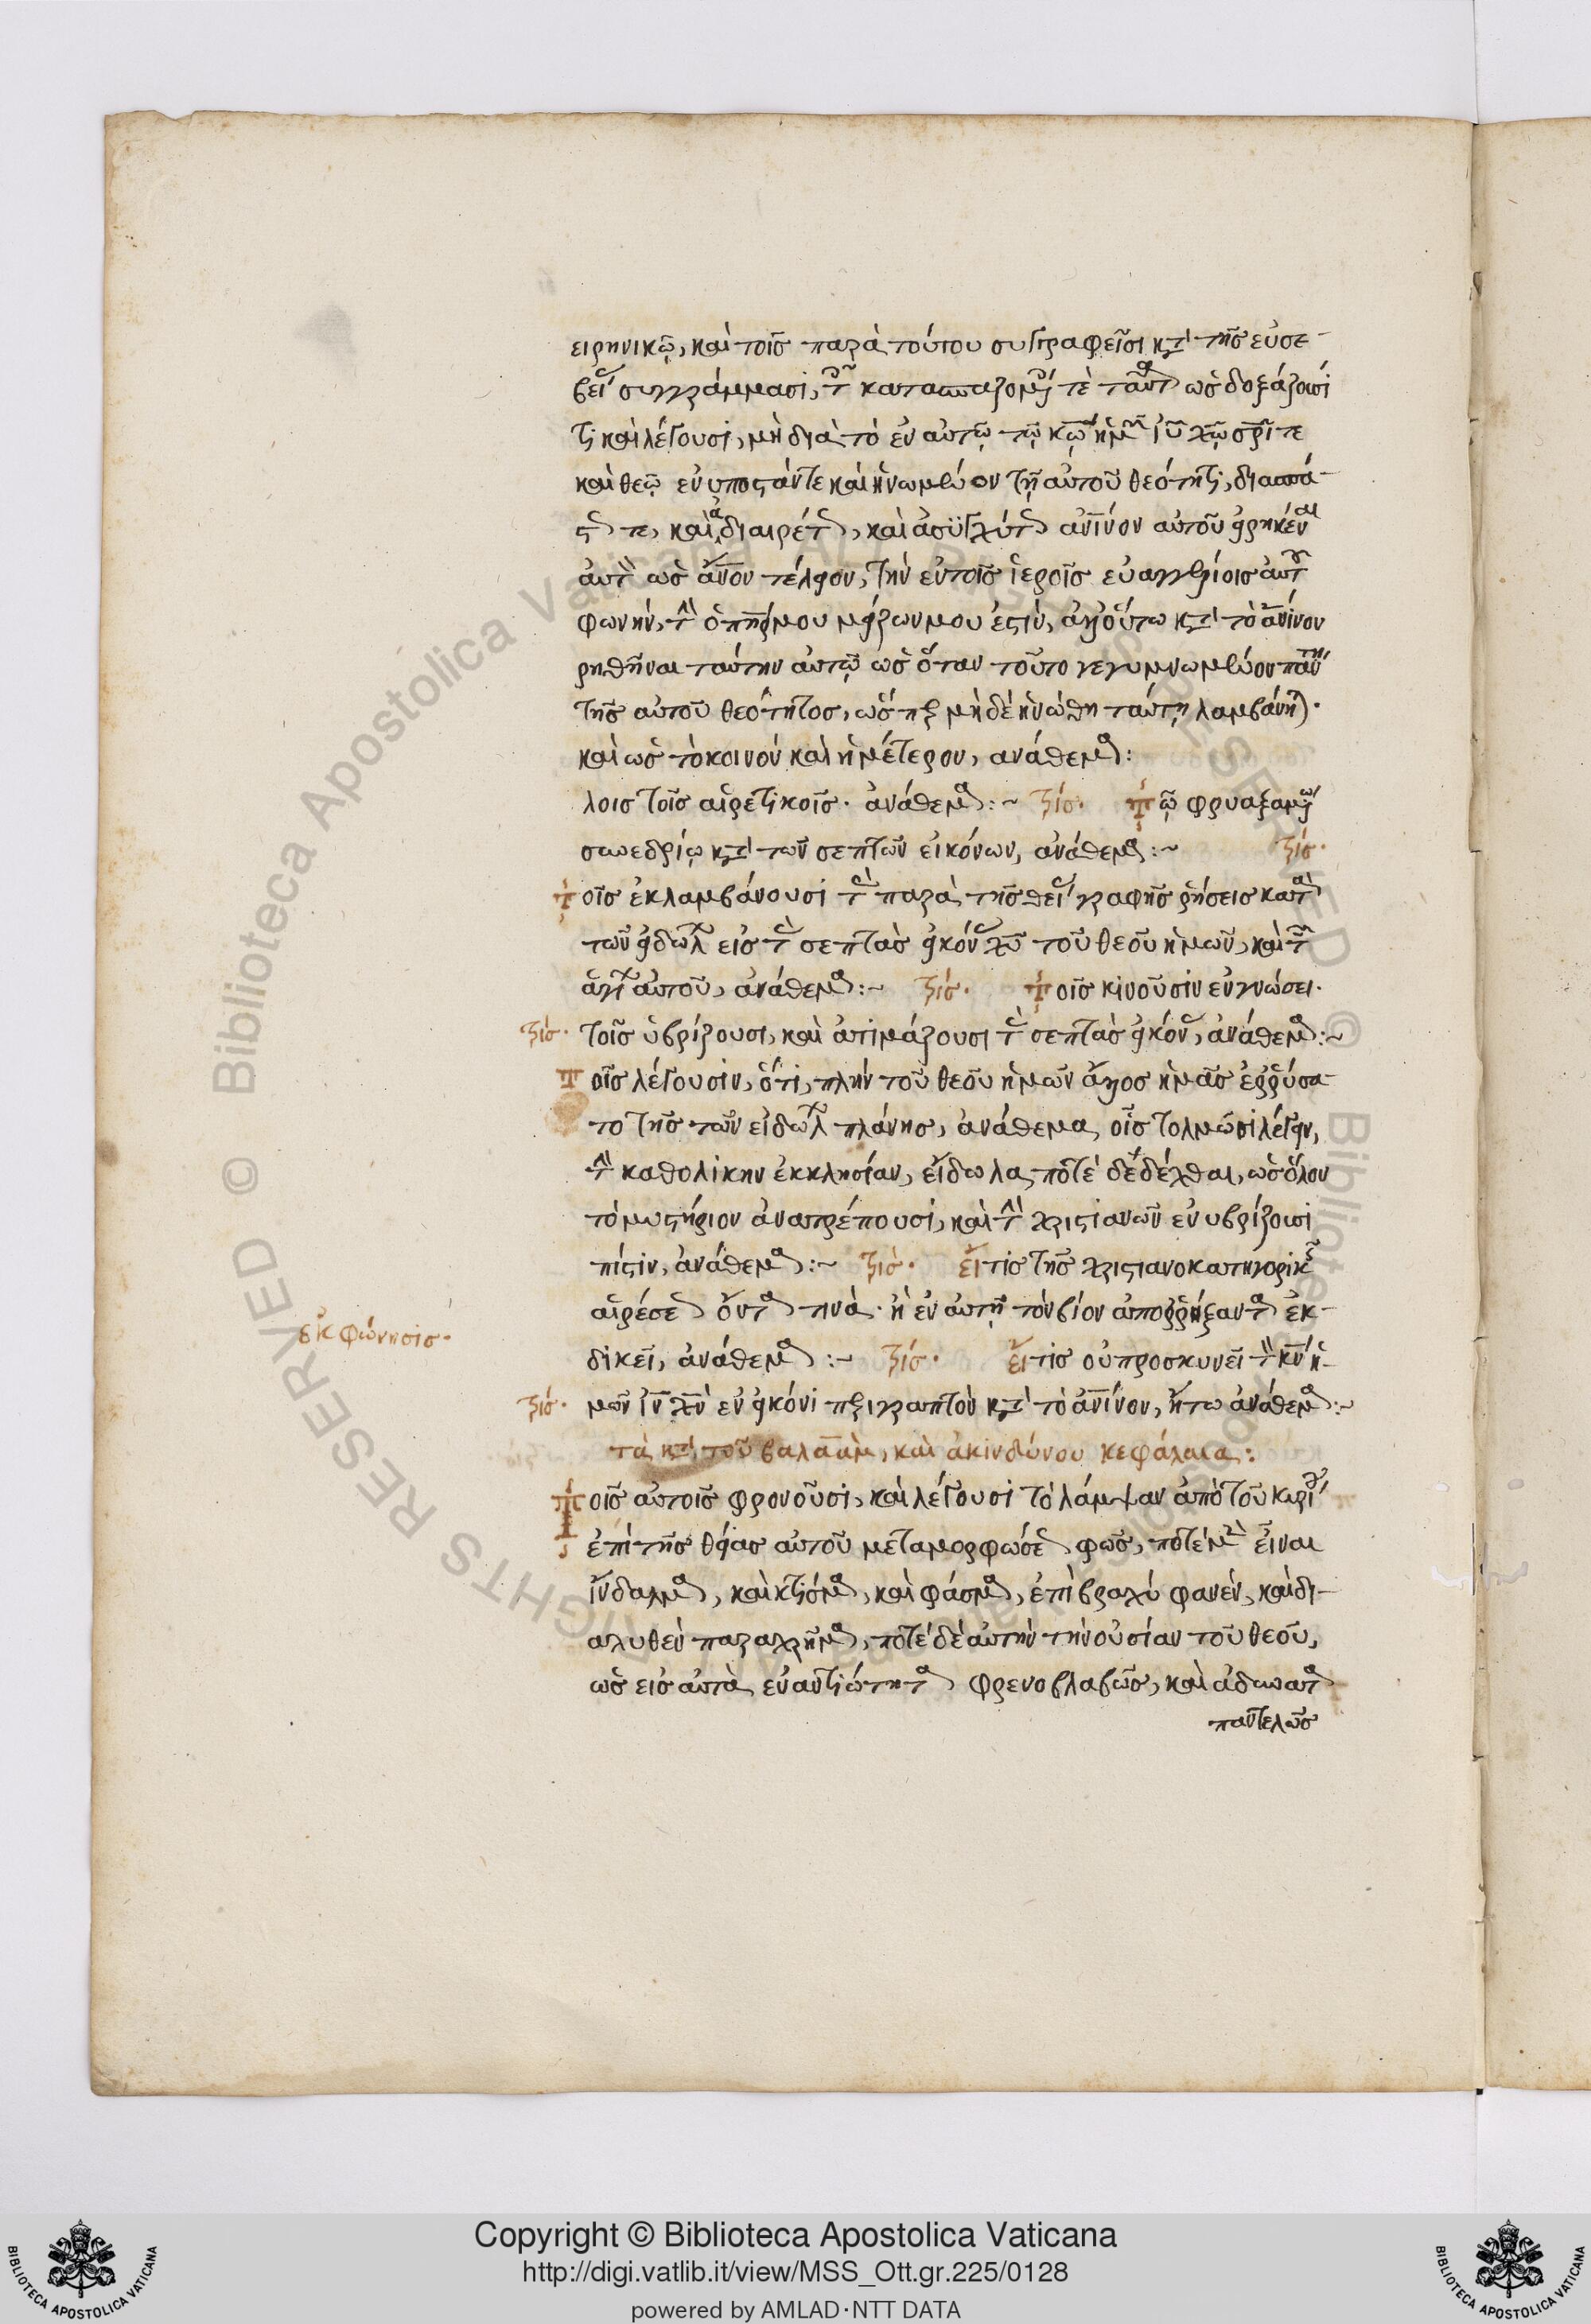 ειρηνικῷ, καὶ τοῖς παρὰ τούτου συγγραφεῖσι κατὰ τῆς εὐσε-
βείας συγγράμμασι, τοῖς κατασπαζομένοις τὲ ταῦτα ὡς δοξάζουσί
τι καὶ λέγουσι, μὴ διὰ τὸ ἐν αὐτῷ τῷ κῷ ἡμῶν ιῦ χῷ σρῖ τε
καὶ θεῷ ἐνυποστάντε καὶ ἡνωμένον τῇ αὐτοῦ θεότητι, διασπά-
στως τε, καὶ ἀδιαιρέτως, καὶ ἀσυγχύτως ἀνίνον αὐτοῦ εἰρηκέναι
αὐτὸν ὡς ἄνον τέλειον, τὴν ἐν τοῖς ἱεροῖς εὐαγγελίοις αὐτοῦ
φωνήν, τὴν ὁ πηρ μου μείζων μου ἐστίν, ἀλλ' οὕτω κατὰ τὸ ἀνίνον
ρηθῆναι ταύτην αὐτῷ ὡς ὅταν τοῦτο γεγυμνωμένον πάντη
τῆς αὐτοῦ θεότητος, ὥσπερ μὴ δὲ ἡνώθη ταύτῃ λαμβάνηται·
καὶ ὡς τὸ κοινὸν καὶ ἡμέτερον, ανάθεμα:
λοις τοῖς αἱρετικοῖς· ἀνάθεμα:~ τρίς· Τῷ φρυαξαμένῳ
συνεδρίῳ κατὰ τῶν σεπτῶν εἰκόνων, ἀνάθεμα:~ τρίς·
Τοῖς ἐκλαμβάνουσι τὰς παρὰ τῆς θείας γραφῆς ρήσεις κατὰ
τῶν εἰδώλων εἰς τὰς σεπτὰς εἰκόνας χῦ τοῦ θεοῦ ἡμῶν, καὶ τῶν
ἁγίων αὐτοῦ, ἀνάθεμα:~ τρίς· Τοῖς κινοῦσιν ἐν γνώσει·
τρίς· τοῖς ὑβρίζουσι, καὶ ἀτιμάζουσι τὰς σεπτὰς εἰκόνας, ἀνάθεμα:~
Τοῖς λέγουσιν, ὅτι, πλὴν τοῦ θεοῦ ἡμῶν ἄλλος ἡμᾶς ἐρρύσα-
το τῆς τῶν εἰδώλων πλάνης, ἀνάθεμα, οἷς τολμῶσι λέγειν,
τὴν καθολικὴν ἐκκλησίαν, εἴδωλα ποτὲ δεδέχθαι, ὡς ὅλον
τὸ μυστήριον ἀνατρέπουσι, καὶ τὴν χριστιανῶν ἐνυβρίζουσι
πίστιν, ἀνάθεμα:~ τρίς· εἴ τις τῆς χριστιανοκατηγορικῆς
αἱρέσεως ὄντα τινὰ· ἢ ἐν αὐτῇ τὸν βίον ἀπορρήξαντα ἐκ-
ἐκφώνησις·
δικεῖ, ἀνάθεμα:~ τρίς· εἴ τις οὐ προσκυνεῖ τὸν κν ἡ-
τρίς· μῶν ιν χν ἐν εἰκόνι περιγραπτὸν κατὰ τὸ ἀνίνον, ἤτω ἀνάθεμα:~
τὰ κατὰ τοῦ βαλαὰμ, καὶ ἀκινδύνου κεφάλαια:
Τοῖς αὐτοῖς φρονοῦσι, καὶ λέγουσι τὸ λάμψαν ἀπὸ τοῦ κυρίου
ἐπὶ τῆς θείας αὐτοῦ μεταμορφώσεως φῶς, ποτὲ μὲν εἶναι
ἴνδαλμα, καὶ κτίσμα, καὶ φάσμα, ἐπὶ βραχὺ φανὲν, καὶ δι-
αλυθὲν παραχρῆμα, ποτὲ δὲ αὐτὴν τὴν οὐσίαν τοῦ θεοῦ,
ὡς εἰς αὐτὰ ἐναντιώτητα φρενοβλαβῶς, καὶ ἀδύνατα
παντελῶς
Copyright © Biblioteca Apostolica Vaticana
http://digi.vatlib.it/view/MSS_Ott.gr.225/0128
powered by AMLAD·NTT DATA